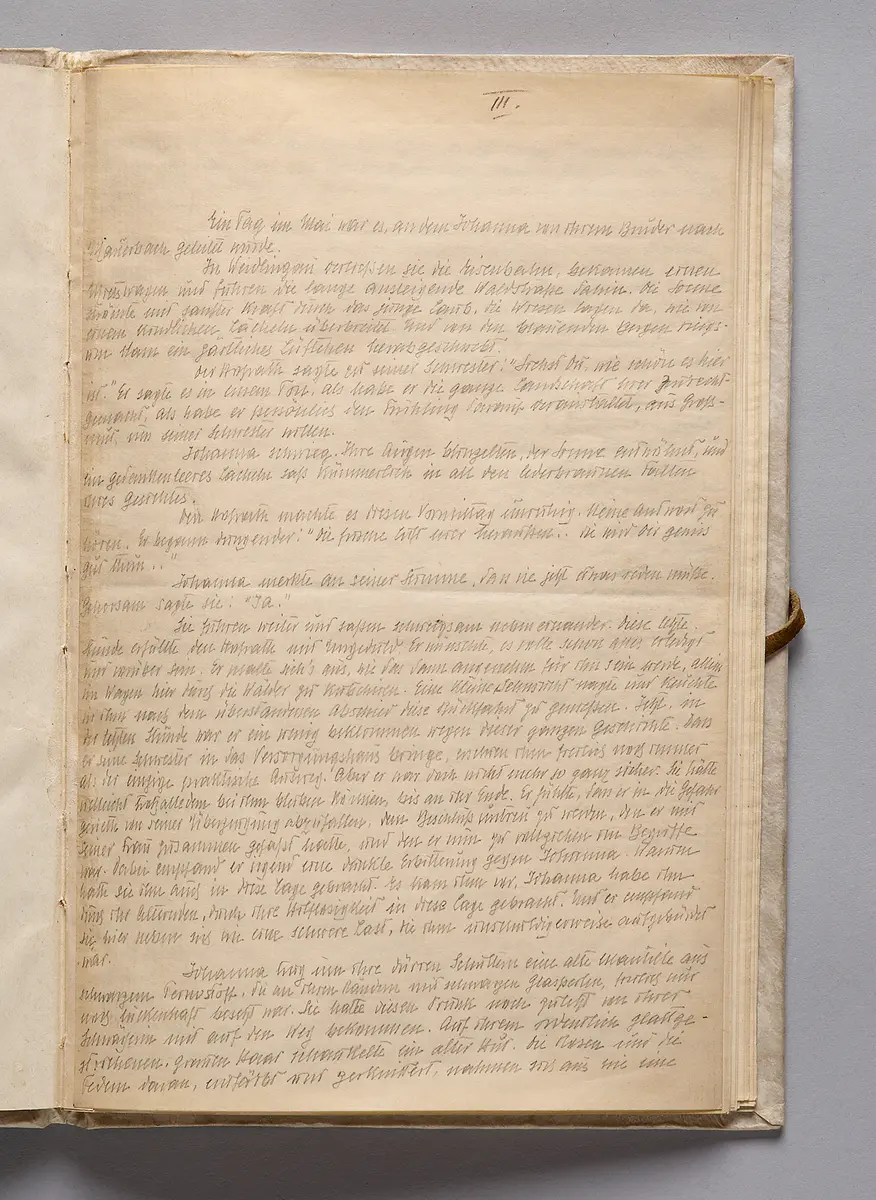 III.
Ein Tag im Mai war es, an dem Johanna von ihrem Bruder nach
Mauerbach geleitet wurde.
In Weidlingau verließen sie die Eisenbahn, bekamen einen
und fuhren die lange ansteigende Waldstraße dahin. Die Sonne
und sanfter Kraft durch das junge Laub, die Wiesen lagen da, wie von
einem kindlichen Lächeln überbreitet. Und von den blauenden Bergen rings-
um kam ein zärtliches Lüftchen herabgeschwebt.
Der Hofrath sagte zu seiner Schwester: "Siehst Du, wie schön es hier
ist." Er sagte es in einem Ton, als habe er die ganze Landschaft hier zurecht-
gemacht, als habe er persönlich den Frühling darauf veranstaltet, aus Groß-
mut, um seiner Schwester willen.
Johanna schwieg. Ihre Augen blinzelten, der Sonne entwöhnt, und
ein gedankenleeres Lächeln saß kümmerlich in all den lederbraunen Falten
ihres Gesichtes.
Den Hofrath machte es diesen Vormittag unruhig, keine Antwort zu
hören. Er begann dringender: "Die frische Luft hier heraußen .. die wird Dir gewiss
gut thun .."
Johanna merkte an seiner Stimme, dass sie jetzt etwas reden müsse.
Gehorsam sagte sie: "Ja."
Sie fuhren weiter und saßen schweigsam neben einander. Diese letzte
Stunde erfüllte den Hofrath mit Ungeduld. Er wünschte, es solle schon alles erledigt
und vorüber sein. Er malte sich's aus, wie das dann angenehm für ihn sein werde, allein
im Wagen hier durch die Wälder zu kutschiren. Eine kleine Sehnsucht nagte und
in ihm nach dem überstandenen Abschied diese Rückfahrt zu genießen. Jetzt, in
der letzten Stunde war er ein wenig beklommen wegen dieser ganzen Geschichte. Dass
er seine Schwester in das Versorgungshaus bringe, erschien ihm freilich noch immer
als der einzige praktische Ausweg. Aber er war doch nicht mehr so ganz sicher. Sie hätte
vielleicht trotzalledem bei ihm bleiben können, bis an ihr Ende. Er fühlte, dass er in die Gefahr
gerieth von seiner Überzeugung abzufallen, dem Beschluß untreu zu werden, den er mit
seiner Frau zusammen gefaßt hatte, und den er nun zu vollziehen im Begriffe
war. Dabei empfand er irgend eine dunkle Erbitterung gegen Johanna. Warum
hatte sie ihn auch in diese Lage gebracht. Es kam ihm vor, Johanna habe ihn
durch ihr , durch ihre Hilflosigkeit in diese Lage gebracht. Und er empfand
sie hier neben sich wie eine schwere Last, die ihm aufgebürdet
war.
Johanna trug um ihre dürren Schultern eine alte Mantille aus
schwarzem , die an ihren Rändern mit schwarzen Glasperlen, freilich nur
noch lückenhaft besetzt war. Sie hatte diesen Prunk noch zuletzt von ihrer
Schwägerin mit auf den Weg bekommen. Auf ihrem ordentlich glattge-
strichenen, grauen Haar schaukelte ein alter Hut. Die Rosen und die
Federn daran, entfärbt und zerknittert, nahmen sich aus wie eine